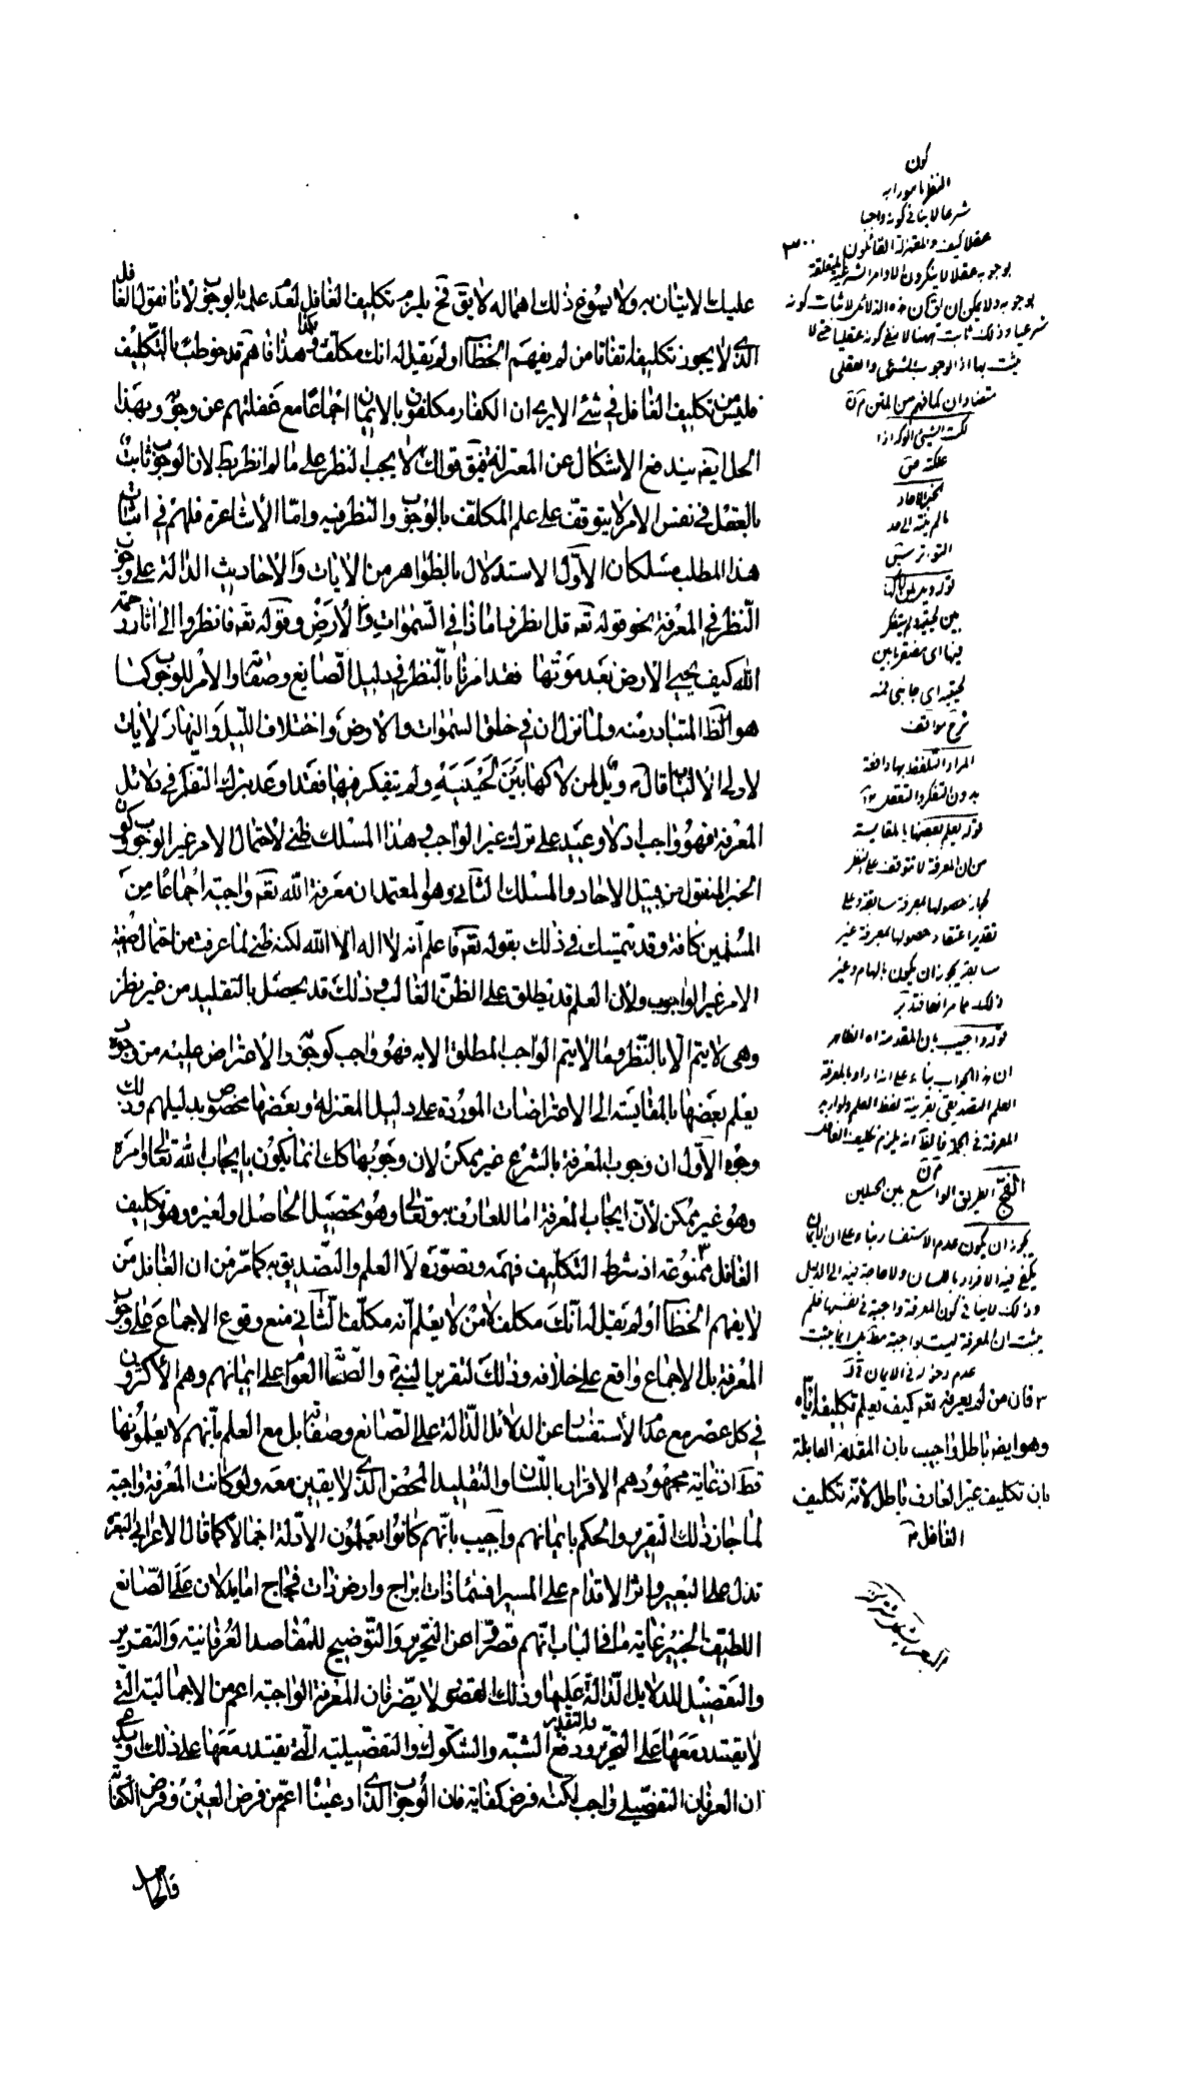 عليك الاتيان به ولا يسوغ ذلك اهماله لا يق فح يلزم تكليف الغافل لعدم علمه بالوجوب لانا نقول الغافل
الذي لا يجوز تكليفه اتفاقا من لم يفهم الخطاب او لم يقل له انك مكلف بكذا فهذا قاهم قد خوطب بالتكليف
فليس من تكليف الغافل في شئ الا يرى ان الكفار مكلفون بالايمان اجماعا مع غفلتهم عن وجوبه وبهذا
الحل ايضه يندفع الاشكال عن المعتزلة فيق قولك لا يجب النظر علي ما لم انظر بط لان الوجوب ثابت
بالعقل في نفس الامر لا يتوقف على علم المكلف بالوجوب والنظر فيه واما الأشاعرة فلهم في اثبات
هذا المطلب مسلكان الأول الاستدلال بالظواهر من الايات والاحاديث الدالة على وجوب
النظر في المعرفة نحو قوله تعه قل انظروا ماذا في السموات والارض وقوله تعه فانظروا الى اثار رحمة
الله كيف يحيي الارض بعد موتها فقد امرنا بالنظر في دليل الصانع وصفاته والأمر للوجوب كما
هو الظ المتبادر منه ولما نزل ان في خلق السموات والارض واختلاف الليل والنهار لايات
لاولي الألباب قال ويل لمن لاكها بين لحييه ولم يتفكر فيها فقد اوعد بترك التفكر في دلائل
المعرفة فهو واجب اذ لا وعيد على ترك غير الواجب وهذا المسلك ظني لاحتمال الامر غير الوجوب وكون
الخبر المنقول من قبيل الاحاد والمسلك الثاني وهو المعتمد ان معرفة الله تعه واجبة اجماعا من
المسلمين كافة وقد يتمسك في ذلك بقوله تعه فاعلم انه لا اله الا الله لكنه ظني لما عرفت من احتمال صيغة
الامر غير الوجوب ولان العلم قد يطلق على الظن الغالب وذلك قد يحصل بالتقليد من غير نظر
وهي لا يتم الا بالنظر وما لا يتم الواجب المطلق الا به فهو واجب كوجوبه والاعتراض عليه من وجوه
يعلم بعضها بالمقايسة الى الاعتراضات الموردة على دليل المعتزلة وبعضها مخصوص بدليلهم وذلك
وجوه الأول ان وجوب المعرفة بالشرع غير ممكن لان وجوبها كك انما يكون بايجاب الله تعالى وامره
وهو غير ممكن لأن ايجاب المعرفة اما للعارف به تعالى وهو تحصيل الحاصل او لغيره وهو تكليف
الغافل ممنوعة اذ شرط التكليف فهمه وتصوره لا العلم والتصديق به كما مر من ان الغافل من
لا يفهم الخطاب او لم يقل له انك مكلف لا من لا يعلم انه مكلف الثاني منع وقوع الاجماع على وجوب
المعرفة بل الاجماع واقع على خلافه وذلك لتقرير النبي والصحابة العوام على ايمانهم وهم الأكثرون
في كل عصر مع عدم الأستفسار عن الدلائل الدالة على الصانع وصفاته بل مع العلم بانهم لا يعلمونها
قط اذ غاية مجهودهم الاقرار باللسان والتقليد المحض الذي لا يقين معه ولو كانت المعرفة واجبة
لما جاز ذلك التقرير والحكم بايمانهم واجيب بانهم كانوا يعلمون الادلة اجمالا كما قال الاعرابي البعرة
تدل على البعير واثر الاقدام على المسير افسماء ذات ابراج وارض ذات فجاج اما يدلان على الصانع
اللطيف الخبير غاية ما في الباب انهم قصروا عن التحرير والتوضيح للمقاصد العرفانية والتقرير
والتفصيل للدلايل الدالة عليها وذلك القصور لا يضر فان المعرفة الواجبة اعم من الاجمالية التي
لا يقتدر معها على التحرير ودفع الشبه والشكوك والتفصيلية التي يقتدر معها على ذلك
ان العرفان التفصيلي واجب لكنه فرض كفاية فان الوجوب الذي ادعيناه اعم من فرض العين وفرض الكفاية
فالحاصل
كون
النظر مامورا به
شرعا لا ينافي كونه واجبا
عقلا كيف والمعتزلة القائلون
بوجوبه عقلا لا ينكرون الاوامر الشرعية المتعلقة
بوجوبه ولا يمكن ان يكون هذه الدلائل لاثبات كونه
شرعيا وذلك ثابت
يثبت بها اذ الوجوب الشرعي والعقلي
متضادان كما فهم من المتن
الخبر الاحاد
ما لم ينته الى حد
التواتر
بين لحييه ولم يتفكر
فيها اي مضغها بين
لحييه اي جانبي فمه
شرح مواقف
المراد التلفظ بها دافعة
بدون التفكر والتعقل
قوله يعلم بعضها بالمقايسة
من ان المعرفة لا تتوقف على النظر
لجواز حصولها بمعرفة سابقة وعلى
تقدير اعتقاد حصولها بمعرفة غير
سابقة يجوز ان يكون بالهام وغير
ذلك مما مر انفا فتدبر
قوله واجيب بان المقدمة اه الظاهر
ان هذا الجواب بناء على انه اراد بالمعرفة
العلم التصديقي بقرينة لفظ العلم ولو اريد
الفج الطريق الواسع بين الجبلين
يجوز ان يكون عدم الاستفسار بناء على ان الايمان
يكفي فيه الاقرار باللسان ولا حاجة فيه الى الدليل
وذلك لا ينافي كون المعرفة واجبة في نفسها فلم
يثبت ان المعرفة ليست بواجبة مطلقا بل انما يثبت
عدم دخوله في الايمان
فان من لم يعرفه تعه كيف يعلم تكليفه اياه
وهو ايضه باطل واجيب بان المقدمة القابلة
بان تكليف غير العارف باطل لأنه تكليف
الغافل